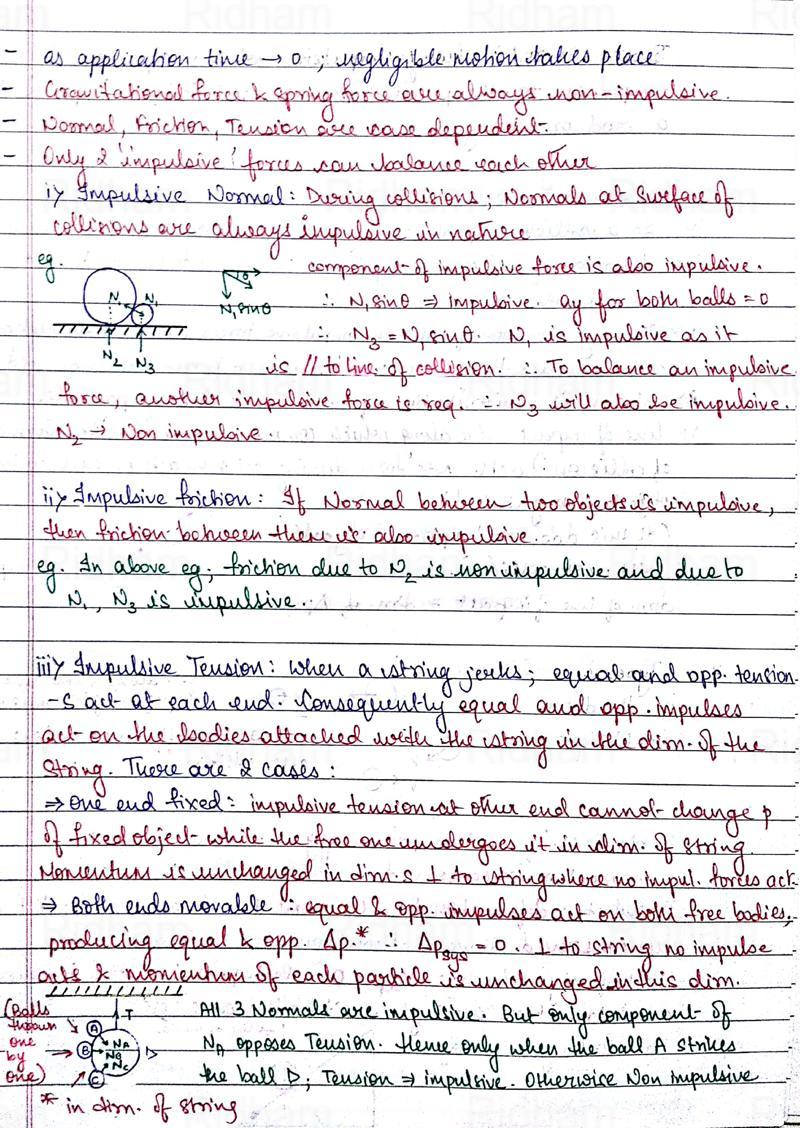 Ridham Ridham Ridham
- as application time → 0 ; negligible motion takes place
- Gravitational force & spring force are always non-impulsive.
- Normal, friction, Tension are case dependent.
- Only 2 'impulsive' forces can balance each other
i> Impulsive Normal: During collisions; Normals at surface of
collisions are always impulsive in nature
eg.
component of impulsive force is also impulsive.
N₁ N₁
θ
N₁sinθ
∴ N₁sinθ ⇒ impulsive. ay for both balls = 0
∴ N₃ = N₁sinθ. N₁ is impulsive as it
N₂ N₃
is // to line of collision. ∴ To balance an impulsive
force, another impulsive force is req. ∴ N₃ will also be impulsive.
N₂ → Non impulsive.
ii> Impulsive friction: If Normal between two objects is impulsive,
then friction between them is also impulsive.
eg. In above eg, friction due to N₂ is non impulsive and due to
N₁, N₃ is impulsive.
iii> Impulsive Tension: When a string jerks; equal and opp. tension
-s act at each end. Consequently equal and opp. impulses
act on the bodies attached with the string in the dirn. of the
string. There are 2 cases:
⇒ One end fixed: impulsive tension at other end cannot change p
of fixed object while the free one undergoes it in dirn. of string
Momentum is unchanged in dirn.s ⊥ to string where no impul. forces act.
⇒ Both ends movable: equal & opp. impulses act on both free bodies,
producing equal & opp. Δp.* ∴ Δpsys = 0. ⊥ to string no impulse
acts & momentum of each particle is unchanged in this dirn.
(Balls thrown one by one)
T
A
B
C
D
NA
NB
NC
All 3 Normals are impulsive. But only component of
NA opposes Tension. Hence only when the ball A strikes
the ball D; Tension ⇒ impulsive. Otherwise Non impulsive
* in dirn. of string